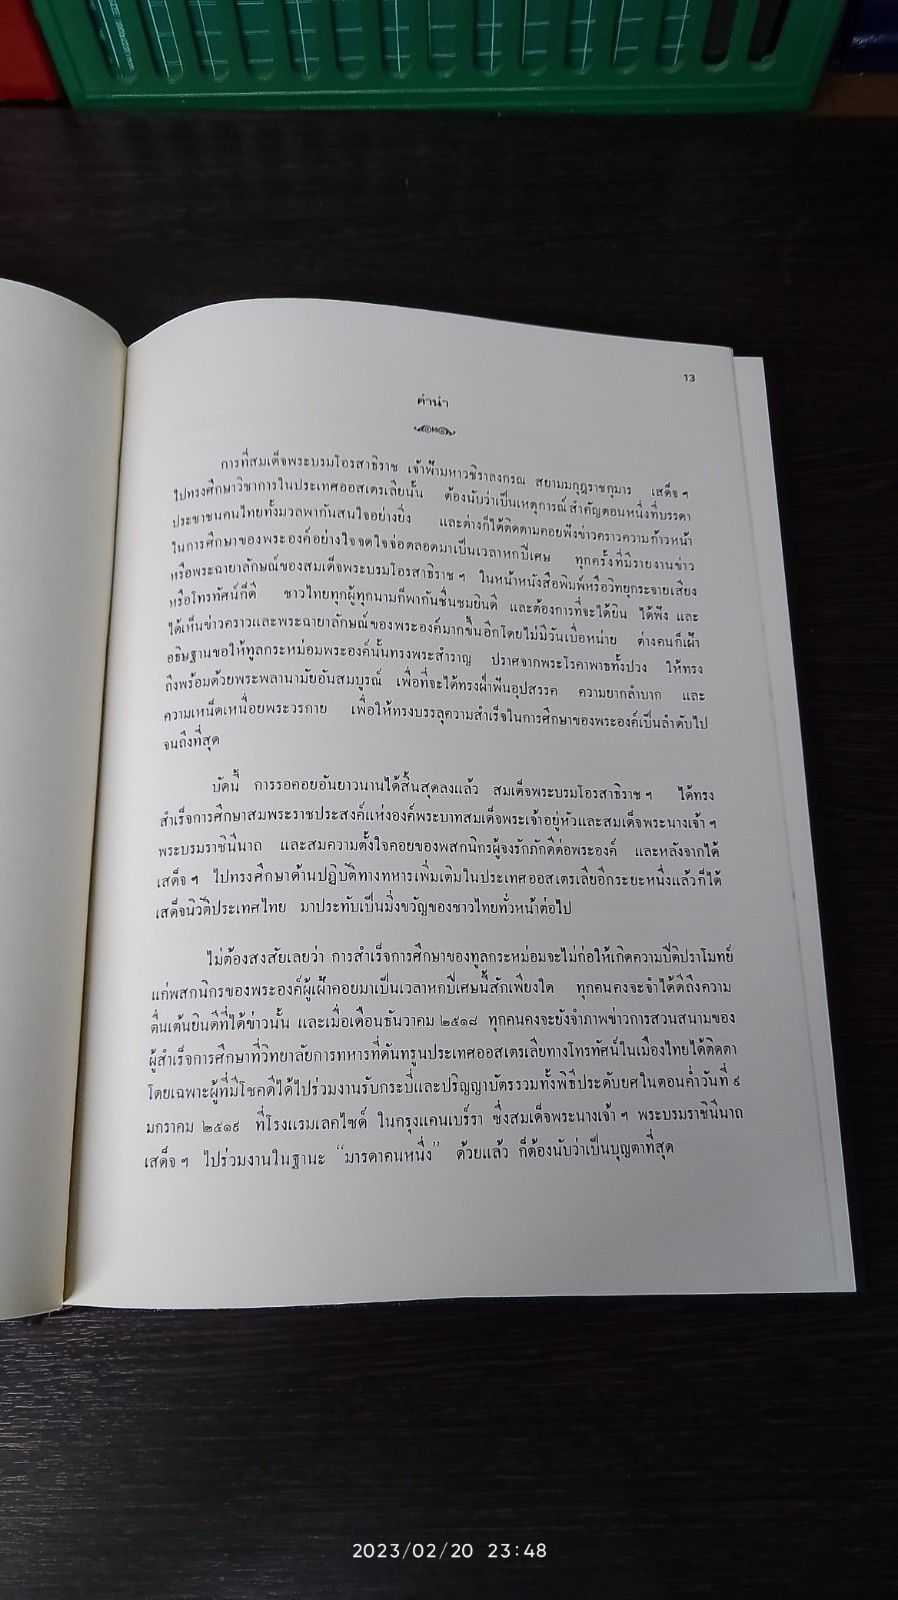 13
คำนำ
การที่สมเด็จพระบรมโอรสาธิราช เจ้าฟ้ามหาวชิราลงกรณ สยามมกุฎราชกุมาร เสด็จ ฯ
ไปทรงศึกษาวิชาการในประเทศออสเตรเลียนั้น ต้องนับว่าเป็นเหตุการณ์สำคัญตอนหนึ่งที่บรรดา
ประชาชนคนไทยทั้งมวลพากันสนใจอย่างยิ่ง และต่างก็ได้ติดตามคอยฟังข่าวคราวความก้าวหน้า
ในการศึกษาของพระองค์อย่างใจจดใจจ่อตลอดมาเป็นเวลาหกปีเศษ ทุกครั้งที่มีรายงานข่าว
หรือพระฉายาลักษณ์ของสมเด็จพระบรมโอรสาธิราช ฯ ในหน้าหนังสือพิมพ์หรือวิทยุกระจายเสียง
หรือโทรทัศน์ก็ดี ชาวไทยทุกผู้ทุกนามก็พากันชื่นชมยินดี และต้องการที่จะได้ยิน ได้ฟัง และ
ได้เห็นข่าวคราวและพระฉายาลักษณ์ของพระองค์มากขึ้นอีกโดยไม่มีวันเบื่อหน่าย ต่างคนก็เฝ้า
อธิษฐานขอให้ทูลกระหม่อมพระองค์นั้นทรงพระสำราญ ปราศจากพระโรคาพาธทั้งปวง ให้ทรง
ถึงพร้อมด้วยพระพลานามัยอันสมบูรณ์ เพื่อที่จะได้ทรงฝ่าฟันอุปสรรค ความยากลำบาก และ
ความเหน็ดเหนื่อยพระวรกาย เพื่อให้ทรงบรรลุความสำเร็จในการศึกษาของพระองค์เป็นลำดับไป
จนถึงที่สุด
บัดนี้ การรอคอยอันยาวนานได้สิ้นสุดลงแล้ว สมเด็จพระบรมโอรสาธิราช ฯ ได้ทรง
สำเร็จการศึกษาสมพระราชประสงค์แห่งองค์พระบาทสมเด็จพระเจ้าอยู่หัวและสมเด็จพระนางเจ้า ฯ
พระบรมราชินีนาถ และสมความตั้งใจคอยของพสกนิกรผู้จงรักภักดีต่อพระองค์ และหลังจากได้
เสด็จ ฯ ไปทรงศึกษาด้านปฏิบัติทางทหารเพิ่มเติมในประเทศออสเตรเลียอีกระยะหนึ่งแล้วก็ได้
เสด็จนิวัติประเทศไทย มาประทับเป็นมิ่งขวัญของชาวไทยทั่วหน้าต่อไป
ไม่ต้องสงสัยเลยว่า การสำเร็จการศึกษาของทูลกระหม่อมจะไม่ก่อให้เกิดความปีติปราโมทย์
แก่พสกนิกรของพระองค์ผู้เฝ้าคอยมาเป็นเวลาหกปีเศษนี้สักเพียงใด ทุกคนคงจะจำได้ดีถึงความ
ตื่นเต้นยินดีที่ได้ข่าวนั้น และเมื่อเดือนธันวาคม ๒๕๑๘ ทุกคนคงจะยังจำภาพข่าวการสวนสนามของ
ผู้สำเร็จการศึกษาที่วิทยาลัยการทหารที่ดันทรูนประเทศออสเตรเลียทางโทรทัศน์ในเมืองไทยได้ติดตา
โดยเฉพาะผู้ที่มีโชคดีได้ไปร่วมงานรับกระบี่และปริญญาบัตรรวมทั้งพิธีประดับยศในตอนค่ำวันที่ ๙
มกราคม ๒๕๑๙ ที่โรงแรมเลคไซด์ ในกรุงแคนเบร์รา ซึ่งสมเด็จพระนางเจ้า ฯ พระบรมราชินีนาถ
เสด็จ ฯ ไปร่วมงานในฐานะ “มารดาคนหนึ่ง” ด้วยแล้ว ก็ต้องนับว่าเป็นบุญตาที่สุด
2023/02/20 23:48